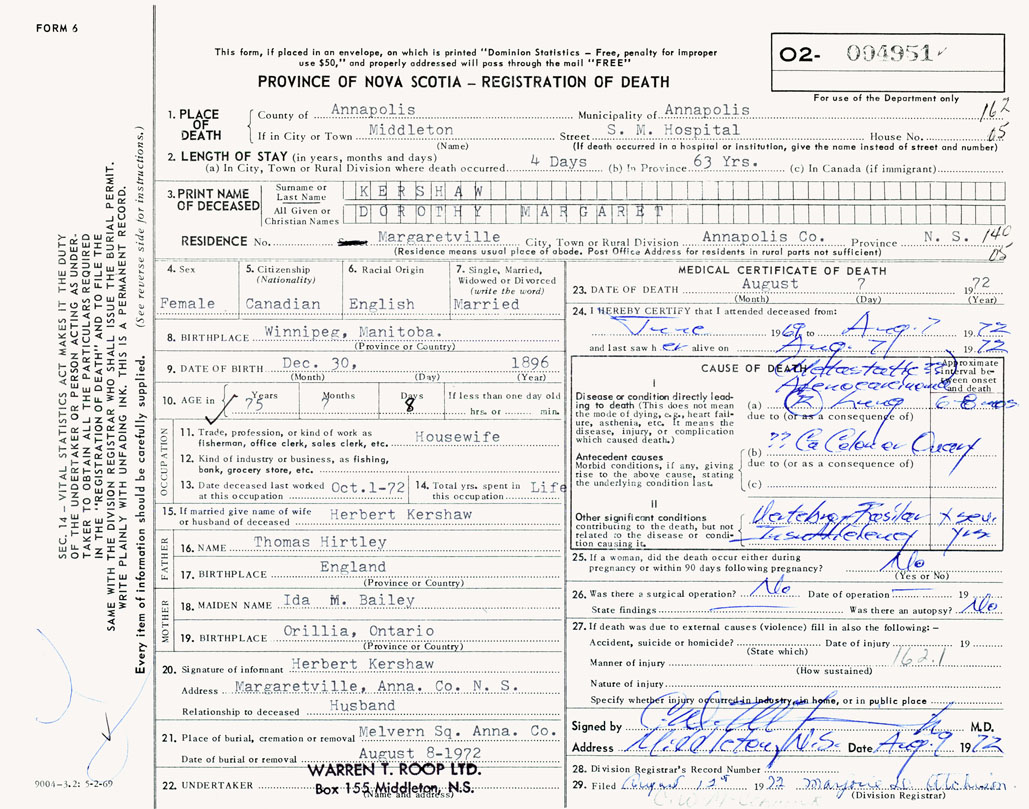 FORM 6
This form, if placed in an envelope, on which is printed "Dominion Statistics – Free, penalty for improper
use $50," and properly addressed will pass through the mail "FREE"
PROVINCE OF NOVA SCOTIA – REGISTRATION OF DEATH
O2- 004951
For use of the Department only
162
05
1. PLACE OF DEATH
County of Annapolis Municipality of Annapolis
If in City or Town Middleton Street S. M. Hospital House No.
(Name) (If death occurred in a hospital or institution, give the name instead of street and number)
2. LENGTH OF STAY (in years, months and days)
(a) In City, Town or Rural Division where death occurred 4 Days (b) In Province 63 Yrs. (c) In Canada (if immigrant)
3. PRINT NAME OF DECEASED
Surname or Last Name KERSHAW
All Given or Christian Names DOROTHY MARGARET
RESIDENCE No. Margaretville City, Town or Rural Division Annapolis Co. Province N. S. 140
05
(Residence means usual place of abode. Post Office Address for residents in rural parts not sufficient)
4. Sex
Female
5. Citizenship
(Nationality)
Canadian
6. Racial Origin
English
7. Single, Married,
Widowed or Divorced
(write the word)
Married
8. BIRTHPLACE Winnipeg, Manitoba.
(Province or Country)
9. DATE OF BIRTH Dec. 30, 1896
(Month) (Day) (Year)
10. AGE in Years 75 Months 7 Days 8 If less than one day old
hrs. or min.
OCCUPATION
11. Trade, profession, or kind of work as
fisherman, office clerk, sales clerk, etc. Housewife
12. Kind of industry or business, as fishing,
bank, grocery store, etc.
13. Date deceased last worked
at this occupation Oct.1-72
14. Total yrs. spent in
this occupation Life
15. If married give name of wife
or husband of deceased Herbert Kershaw
FATHER
16. NAME Thomas Hirtley
17. BIRTHPLACE England
(Province or Country)
MOTHER
18. MAIDEN NAME Ida M. Bailey
19. BIRTHPLACE Orillia, Ontario
(Province or Country)
20. Signature of informant Herbert Kershaw
Address Margaretville, Anna. Co. N. S.
Relationship to deceased Husband
21. Place of burial, cremation or removal Melvern Sq. Anna. Co.
Date of burial or removal August 8-1972
22. UNDERTAKER WARREN T. ROOP LTD.
Box 155 Middleton, N.S.
(Name and address)
MEDICAL CERTIFICATE OF DEATH
23. DATE OF DEATH August 7 1972
(Month) (Day) (Year)
24. I HEREBY CERTIFY that I attended deceased from:
June 1969 to Aug. 7 1972
and last saw her alive on Aug. 7 1972
CAUSE OF DEATH
Approximate
interval be-
tween onset
and death
I
Disease or condition directly lead-
ing to death (This does not mean
the mode of dying, e.g., heart fail-
ure, asthenia, etc. It means the
disease, injury, or complication
which caused death.)
Metastatic ??
Adenocarcinoma
(a) (R) Lung 6-8 mos
due to (or as a consequence of)
Antecedent causes
Morbid conditions, if any, giving
rise to the above cause, stating
the underlying condition last.
(b) ?? Ca Colon or Ovary
due to (or as a consequence of)
(c)
II
Other significant conditions
contributing to the death, but not
related to the disease or condi-
tion causing it.
Vertebro Basilar
Insufficiency yrs.
25. If a woman, did the death occur either during
pregnancy or within 90 days following pregnancy? No
(Yes or No)
26. Was there a surgical operation? No Date of operation 19
State findings Was there an autopsy? No
27. If death was due to external causes (violence) fill in also the following: –
Accident, suicide or homicide? Date of injury 19
(State which)
162.1
Manner of injury
(How sustained)
Nature of injury
Specify whether injury occurred in industry, in home, or in public place
Signed by M.D.
Address Middleton, N.S. Date Aug. 9 1972
28. Division Registrar's Record Number
29. Filed August 1972 Marjorie
(Division Registrar)
SEC. 14 – VITAL STATISTICS ACT MAKES IT THE DUTY
OF THE UNDERTAKER OR PERSON ACTING AS UNDER-
TAKER TO OBTAIN ALL THE PARTICULARS REQUIRED
IN THE "REGISTRATION OF DEATH" AND TO FILE THE
SAME WITH THE DIVISION REGISTRAR WHO SHALL ISSUE THE BURIAL PERMIT.
WRITE PLAINLY WITH UNFADING INK. THIS IS A PERMANENT RECORD.
Every item of information should be carefully supplied. (See reverse side for instructions.)
9004-3.2: 5-2-69